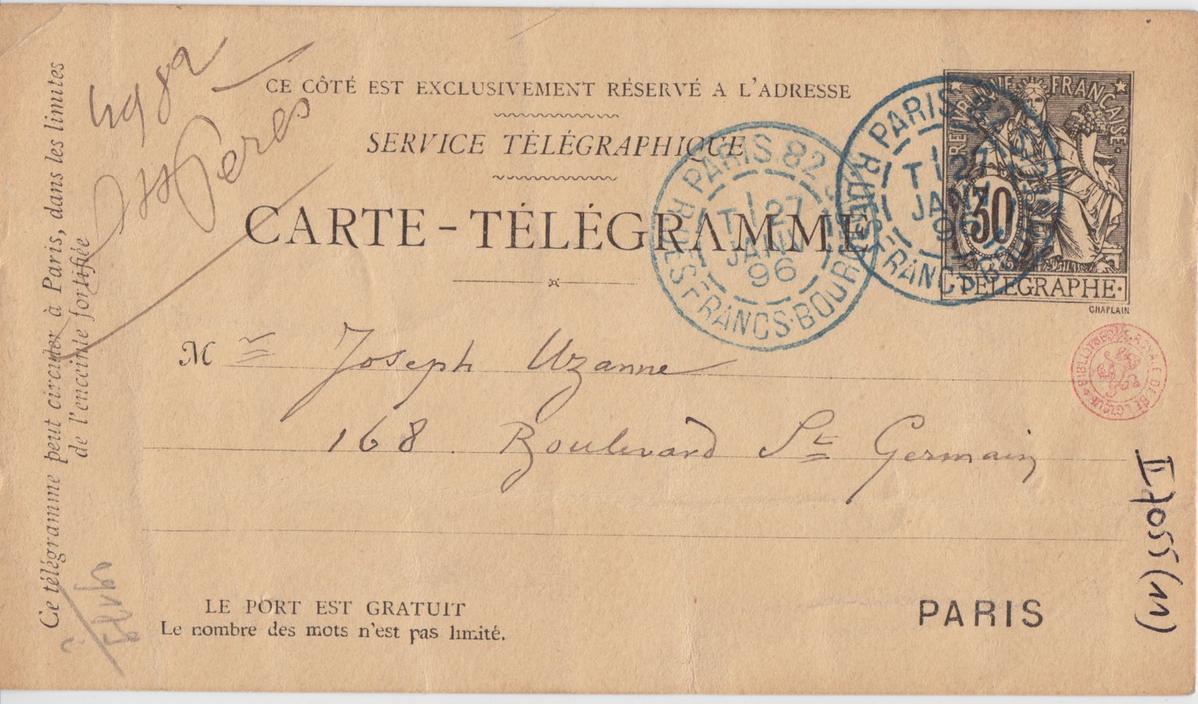 CE CÔTÉ EST EXCLUSIVEMENT RÉSERVÉ A L'ADRESSE
SERVICE TÉLÉGRAPHIQUE
CARTE-TÉLÉGRAMME
Ce télégramme peut circuler à Paris, dans les limites
de l'enceinte fortifiée
REPUBLIQUE FRANÇAISE
30
TÉLÉGRAPHE
CHAPLAIN
PARIS 82
27
JANV
96
R DES FRANCS-BOURGEOIS
PARIS 82
27
JANV
96
R DES FRANCS-BOURGEOIS
BIBLIOTHECA REGALE DE BELGIQUE
Mr Joseph Uzanne
168 Boulevard St Germain
LE PORT EST GRATUIT
Le nombre des mots n'est pas limité.
PARIS
II 7055 (11)